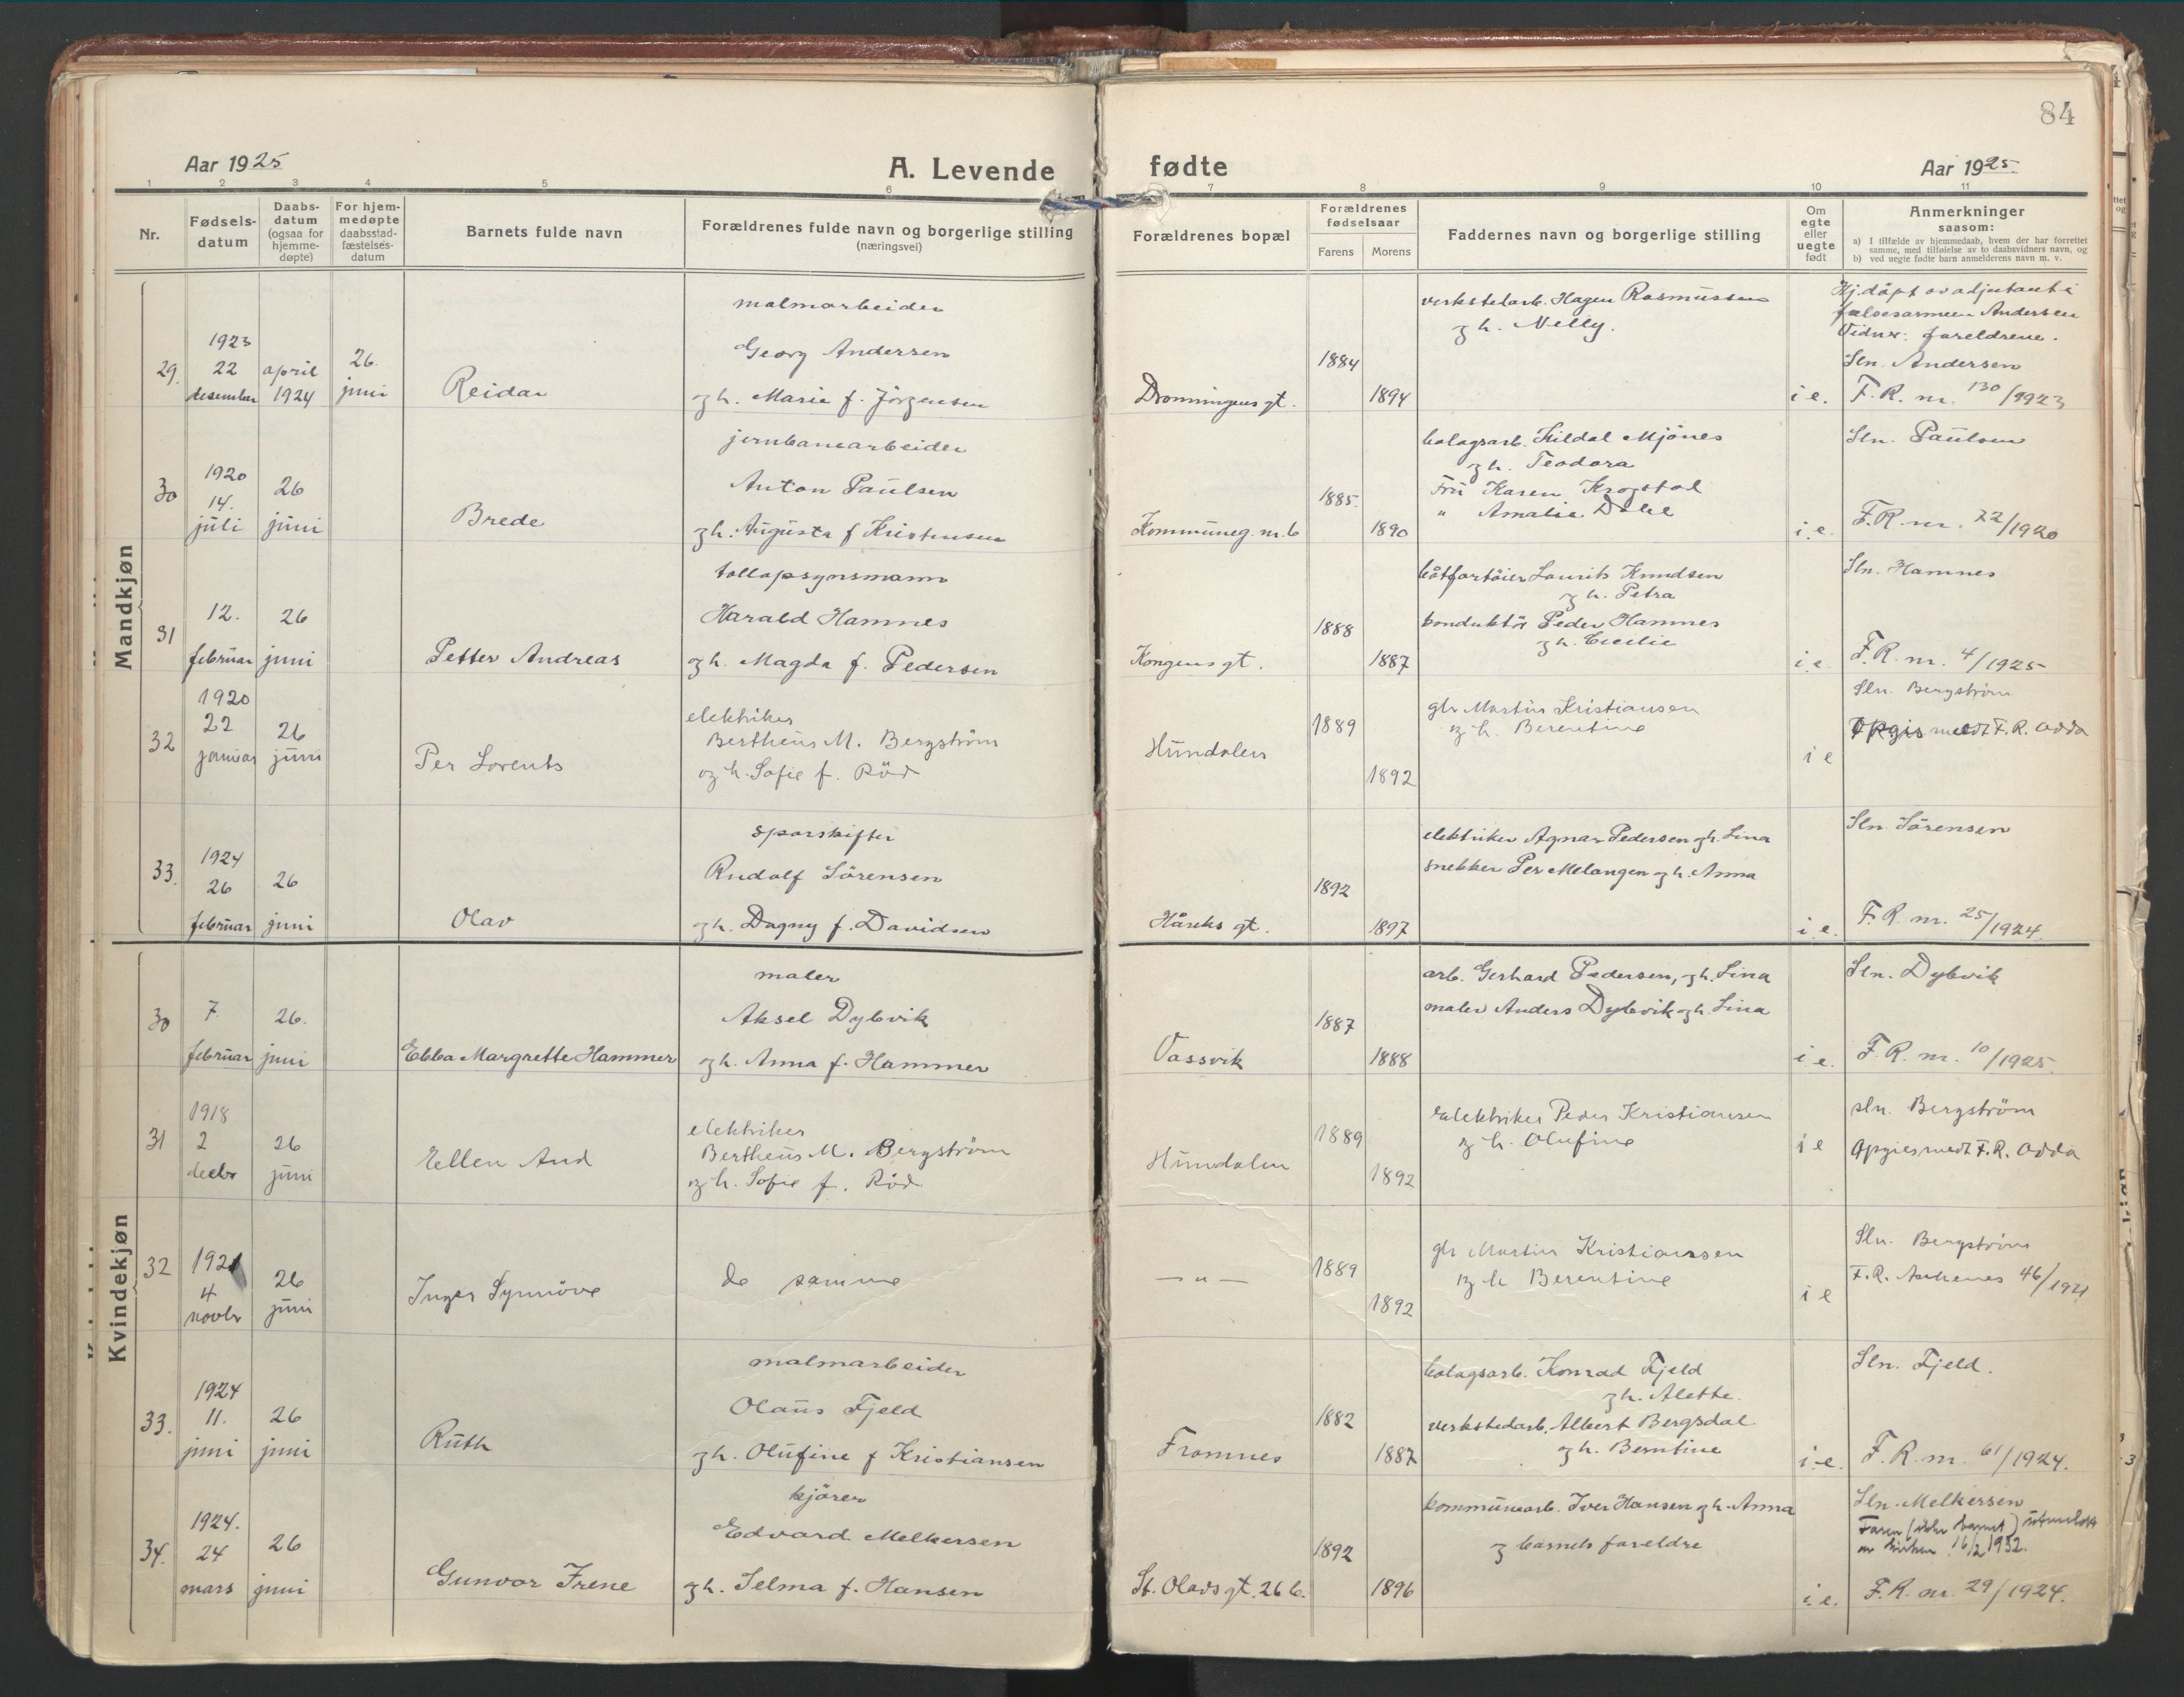 84
Aar 1925
A. Levende
fødte
Aar 1925
1 2 3 4 5 6 7 8 9 10 11
Nr.
Fødsels-
datum
Daabs-
datum
(ogsaa for
hjemme-
døpte)
For hjem-
medøpte
daabsstad-
fæstelses-
datum
Barnets fulde navn
Forældrenes fulde navn og borgerlige stilling
(næringsvei)
Forældrenes bopæl
Forældrenes
fødselsaar
Farens Morens
Faddernes navn og borgerlige stilling
Om
egte
eller
uegte
født
Anmerkninger
saasom:
a) I tilfælde av hjemmedaab, hvem der har forrettet
samme, med tilføielse av to daabsvidners navn, og
b) ved uegte fødte barn anmelderens navn m. v.
Mandkjøn
29.
1923
22
desember
april
1924
26.
juni
Reidar
malmarbeider
Georg Andersen
og h. Marie f. Jörgensen
Dronningensgt.
1884
1894
verkstedarb. Hagen Rasmussen
og h. Nelly.
i e.
Hj.döpt av adjutant i
frelsesarmeen Andersen
Vidner: foreldrene.
Sln. Andersen
F. R. nr. 130/1923
30
1920
14.
juli
26
juni
Brede
jernbanearbeider
Anton Paulsen
og h. Augusta f Kristensen
Kommuneg. nr. 6
1885.
1890
bolagsarb. Kildal Mjönes
og h. Teodora
Fru Karen Krogstal
" Amalie Dahl
i. e.
Sln. Paulsen
F. R. nr. 72/1920
31
12.
februar
26
juni
Petter Andreas
tollopsynsmann
Harald Hamnes
og h. Magda f. Pedersen
Kongensgt.
1888
1887
båtfartöier Laurits Knudsen
og h. Petra
konduktör Peder Hamnes
og h. Cecilie
i e
Sln. Hamnes
F. R. nr. 4/1925
32
1920
22
januar
26
juni
Per Lorents
elektriker
Bertheus M. Bergström
og h. Sofie f. Röd
Hundalen
1889
1892
Martin Kristiansen
og h. Berentine
i e
Sln. Bergström
Opgis meldt F. R. Odda
33.
1924
26
februar
26
juni
Olav
sporskifter
Rudolf Sörensen
og h. Dagny f. Davidsen
Håreks gt.
1892
1897
elektriker Agnar Pedersen og h. Lina
snekker Per Melangen og h. Anna
i e.
Sln. Sörensen
F. R. nr. 25/1924.
Kvindekjøn
30
7
februar
26.
juni
Ebba Margrethe Hammer
maler
Aksel Dybvik
og h. Anna f. Hammer
Vassvik
1887
1888
arb. Gerhard Pedersen, og h. Lina
maler Anders Dybvik og h. Lina
i e.
Sln. Dybvik
F. R. nr. 10/1925.
31
1918
2
decbr
26
juni
Ellen Aud
elektriker
Bertheus M. Bergström
og h. Sofie f. Röd
Hundalen
1889
1892
elektriker Peder Kristiansen
og h. Olufine
i e
sln. Bergström
Opgies meldt F. R. Odda
32
1921
4
novbr
26
juni
Inger Synnöve
de samme
— " —
1889
1892
Martin Kristiansen
og h Berentine
i e
Sln. Bergström
F. R. Ankenes 46/1921
33.
1924
11.
juni
26
juni
Ruth
malmarbeider
Olaus Fjeld
og h. Olufine f Kristiansen
Framnes
1882
1887
bolagsarb. Konrad Fjeld
og h. Alette.
verkstedarb. Albert Bergsdal
og h. Berntine
i e.
Sln. Fjeld.
F. R. nr. 61/1924.
34.
1924.
24
mars
26
juni
Gunvor Irene
kjörer
Edvard Melkersen
og h. Selma f. Hansen
St. Olavs gt. 26 b.
1892
1896
kommunearb. Iver Hansen og h. Anna
og barnets foreldre
i. e.
Sln. Melkersen
Faren (ikke barnet) utmeldt
av kirken 16/2 1932.
F. R. nr. 29/1924.